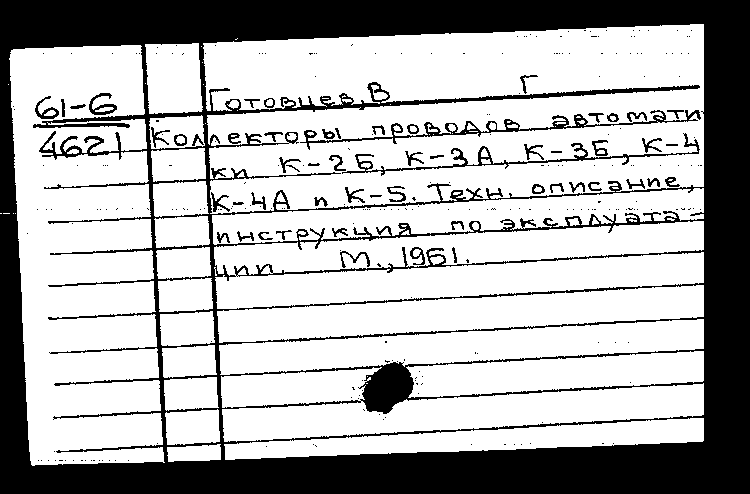 61-6
4621
Готовцев, В Г
Коллекторы проводов автомати
ки К-2Б, К-3А, К-3Б, К-4
К-4А и К-5. Техн. описание,
инструкция по эксплуата-
ции. М., 1961.